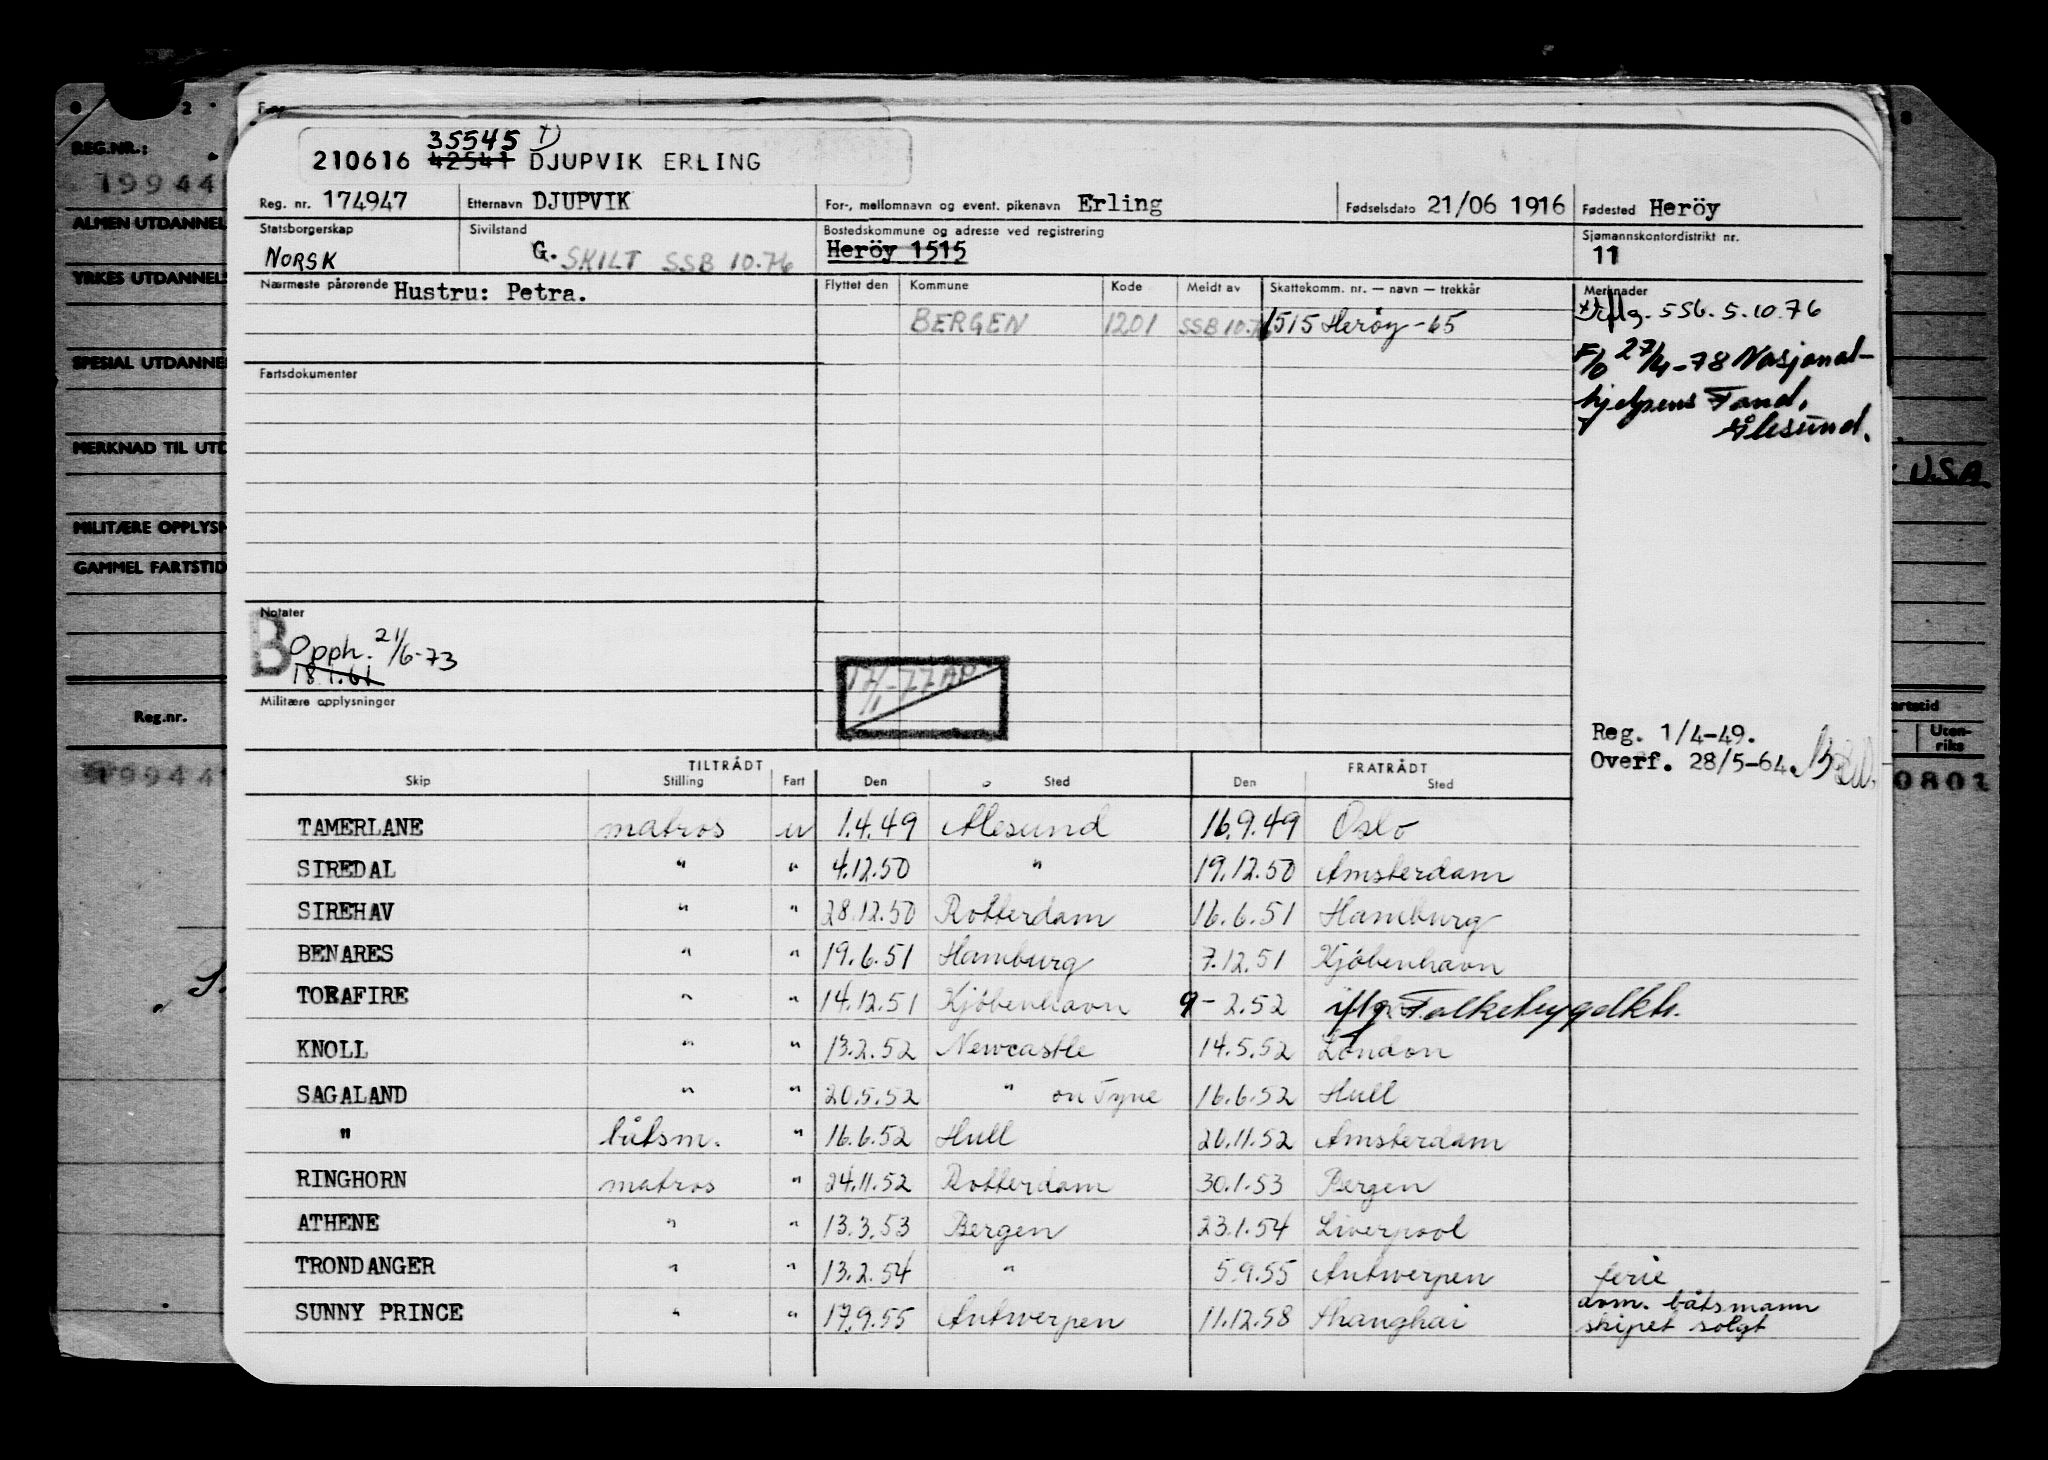 REG.NR.:
19944
ALMEN UTDANNEL
YRKES UTDANNELS
SPESIAL UTDANNE
MERKNAD TIL UTD
MILITÆRE OPPLYSN
GAMMEL FARTSTID
Reg.nr.
19944
U.S.A.
artstid
Uten-
riks
0801
35545
210616 42541 DJUPVIK ERLING
Reg. nr. 174947 Etternavn DJUPVIK For-, mellomnavn og event. pikenavn Erling Fødselsdato 21/06 1916 Fødested Heröy
Statsborgerskap NORSK Sivilstand G. SKILT SSB 10.76 Bostedskommune og adresse ved registrering Heröy 1515 Sjømannskontordistrikt nr. 11
Nærmeste pårørende Hustru: Petra. Flyttet den Kommune Kode Meldt av Skattekomm. nr. — navn — trekkår Merknader
BERGEN 1201 SSB 10.76 1515 Herøy -65
Fartsdokumenter
SSB. 5.10.76
F/O 27/4-78 Nasjonal-
hjelpens Fond,
Ålesund.
Notater
B Opph. 21/6-73
18.1.61
Militære opplysninger
Reg. 1/4-49.
Overf. 28/5-64.
TILTRÅDT FRATRÅDT
Skip Stilling Fart Den Sted Den Sted
TAMERLANE matros u 1.4.49 Ålesund 16.9.49 Oslo
SIREDAL " " 4.12.50 " 19.12.50 Amsterdam
SIREHAV " " 28.12.50 Rotterdam 16.6.51 Hamburg
BENARES " " 19.6.51 Hamburg 7.12.51 Kjöbenhavn
TORAFIRE " " 14.12.51 Kjöbenhavn 9- 2.52 iflg. Folketrygdktr.
KNOLL " " 13.2.52 Newcastle 14.5.52 London
SAGALAND " " 20.5.52 " on Tyne 16.6.52 Hull
" båtsm. " 16.6.52 Hull 20.11.52 Amsterdam
RINGHORN matros " 24.11.52 Rotterdam 30.1.53 Bergen
ATHENE " " 13.3.53 Bergen 23.1.54 Liverpool
TRONDANGER " " 13.2.54 " 5.9.55 Antwerpen ferie
SUNNY PRINCE " " 17.9.55 Antwerpen 11.12.58 Shanghai avm. båtsmann
skipet solgt